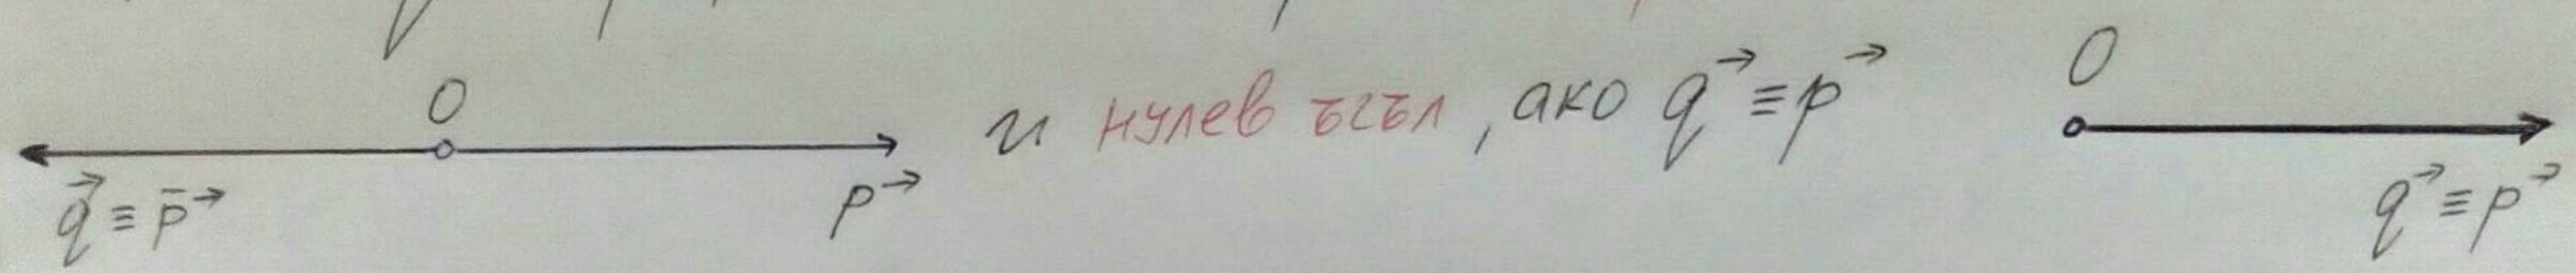 O
q⃗ ≡ p̄→
p→
и нулев ъгъл, ако q→ ≡ p→
O
q→ ≡ p→